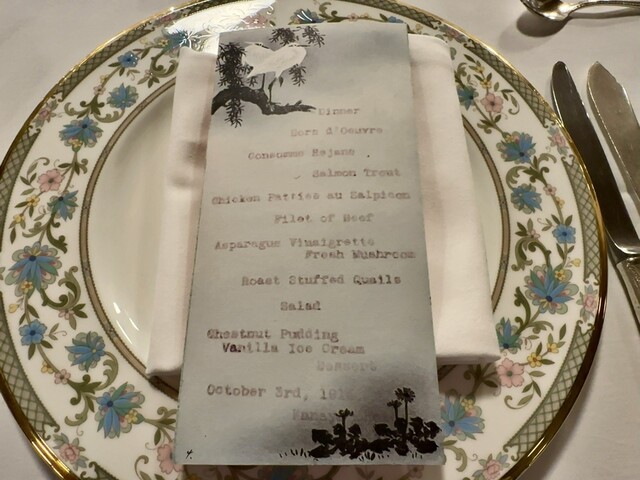 Dinner
Hors d'Oeuvre
Consomme Rejane
Salmon Trout
Chicken Patties au Salpicon
Filet of Beef
Asparagus Vinaigrette
Fresh Mushroom
Roast Stuffed Quails
Salad
Chestnut Pudding
Vanilla Ice Cream
Dessert
October 3rd,